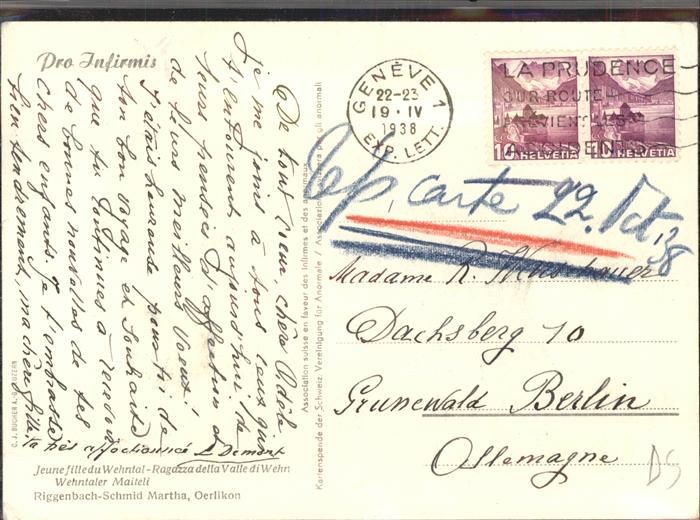 Pro Infirmis
De tout coeur, chère Adèle
je me joins à tous ceux qui
t'entourent aujourd'hui de
leurs pensées d'affection et
de leurs meilleurs voeux.
J'étais heureuse pour toi de
ton bon voyage et souhaite
que tu continues à recevoir
de bonnes nouvelles de tes
chers enfants. Je t'embrasse
bien tendrement, ma chère fille
ta très affectionnée L. Demont
C. J. BUCHER A.G. LUZERN
Jeune fille du Wehntal - Ragazza della Valle di Wehn
Wehntaler Maiteli
Riggenbach-Schmid Martha, Oerlikon
Association suisse en faveur des infirmes et des anormaux
Kartenspende der Schweiz. Vereinigung für Anormale / Associazione gli anormali
GENÈVE 1
22-23
19 · IV
1938
EXP. LETT.
LA PRUDENCE
SUR ROUTE
PREVIENT LES
ACCIDENTS
10 HELVETIA
10 HELVETIA
rép. carte 22. Okt. 38
Madame R.
Dachsberg 10
Grunewald Berlin
Allemagne
DS